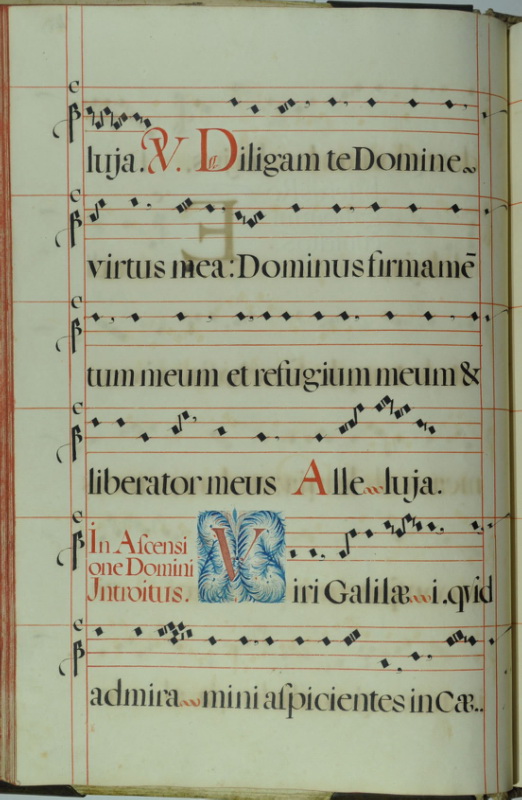 luja. V. Diligam te Domine
virtus mea: Dominus firmamē
tum meum et refugium meum &
liberator meus Alleluja.
In Ascensi
one Domini
Introitus.
Viri Galilæi. quid
admiramini aſpicientes in Cæ..